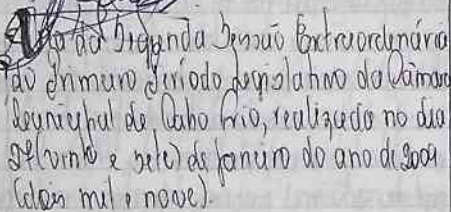 Ata da Segunda Sessão Extraordinária
do Primeiro Período Legislativo da Câmara
Municipal de Cabo Frio, realizada no dia
27 (vinte e sete) de janeiro do ano de 2009
(dois mil e nove).